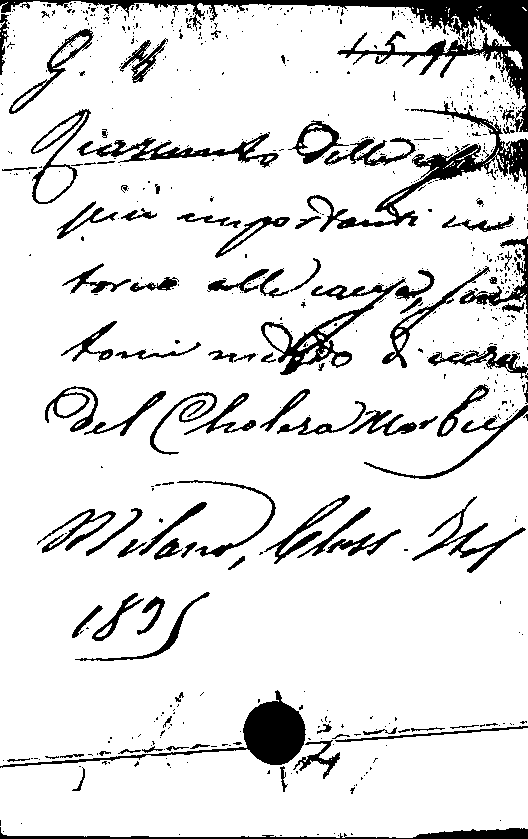 G.
Riassunto delle cose
più importanti in
torno alle cause, sin
tomi metodo di cura
del Cholera Morbus
Milano, Class. Ital
1835